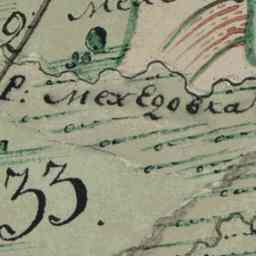 Мехе
Р. Мехедовка
33.